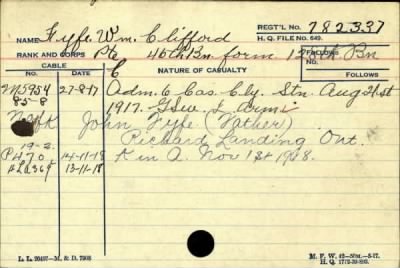 NAME Fyfe, Wm. Clifford REGT'L NO. 782337
H. Q. FILE NO. 649.
RANK AND CORPS Pte 46th Bn. form 128th Bn
CABLE NATURE OF CASUALTY FOLLOWS
NO. DATE FOLLOWS
M5954 27-8-17 Adm. 6 Cas. Cly. Stn. Aug 21st
85-8 1917. G.S.W. L. Arm.
N of K John Fyfe (Father)
19-2. Richard Landing Ont.
P470 14-11-18 K in A. Nov 1st 1918.
13-11-18
L. L. 26497—M. & D. 7903 M. F. W. 42—50M.-5-17.
H. Q. 1772-39-893.